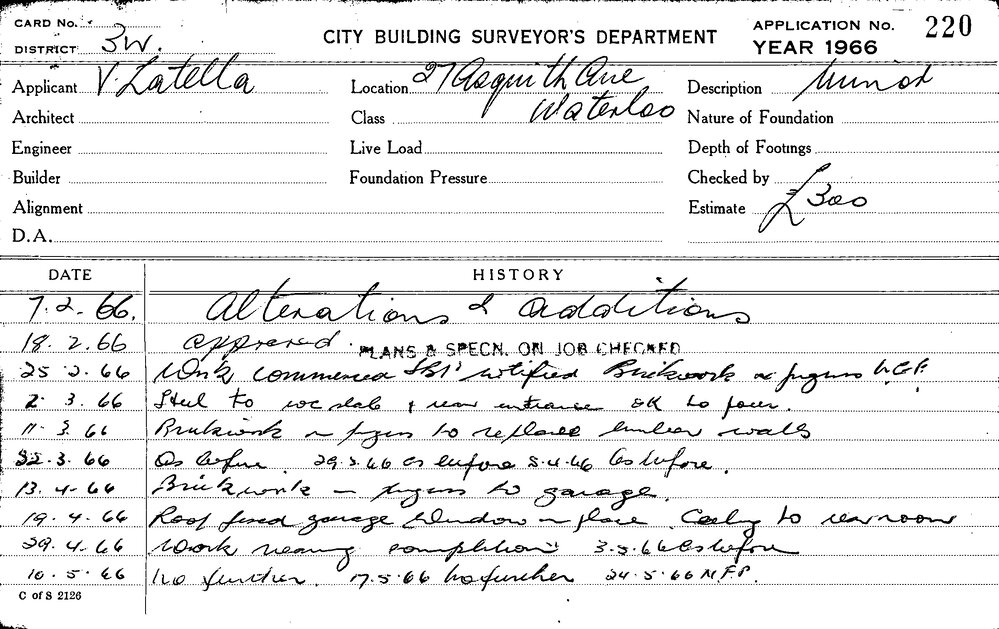 CARD No.
CITY BUILDING SURVEYOR'S DEPARTMENT
APPLICATION No. 220
DISTRICT 3W.
YEAR 1966
Applicant V. Latella
Location 27 Asquith Ave
Waterloo
Description Minor
Architect
Class
Nature of Foundation
Engineer
Live Load
Depth of Footings
Builder
Foundation Pressure
Checked by
Alignment
Estimate £300
D.A.
DATE HISTORY
7.2.66. Alterations & additions
18.2.66 approved. PLANS & SPECN. ON JOB CHECKED
25.2.66 Work commenced notified Brickwork in
2.3.66 Steel to wc slab & rear entrance OK to pour.
11.3.66 Brickwork in to replace timber walls
22.3.66 As before. 29.3.66 As before 5.4.66 As before.
13.4.66 Brickwork in to garage.
19.4.66 Roof garage Window in place. to rear room
29.4.66 Work nearing completion 3.5.66 As before
10.5.66 No further. 17.5.66 No further 24.5.66 N.F.P.
C of S 2126